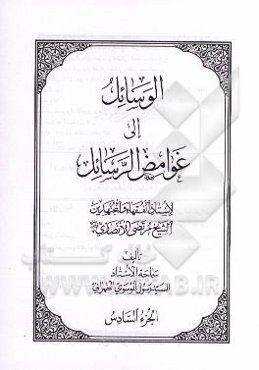 الوسائل
إلى
غوامض الرسائل
لأستاذ الفقهاء والمجتهدين
الشيخ مرتضى الأنصاري
تأليف
سماحة الأستاذ
السيد رسول الموسوي الطهراني
الجزء السادس